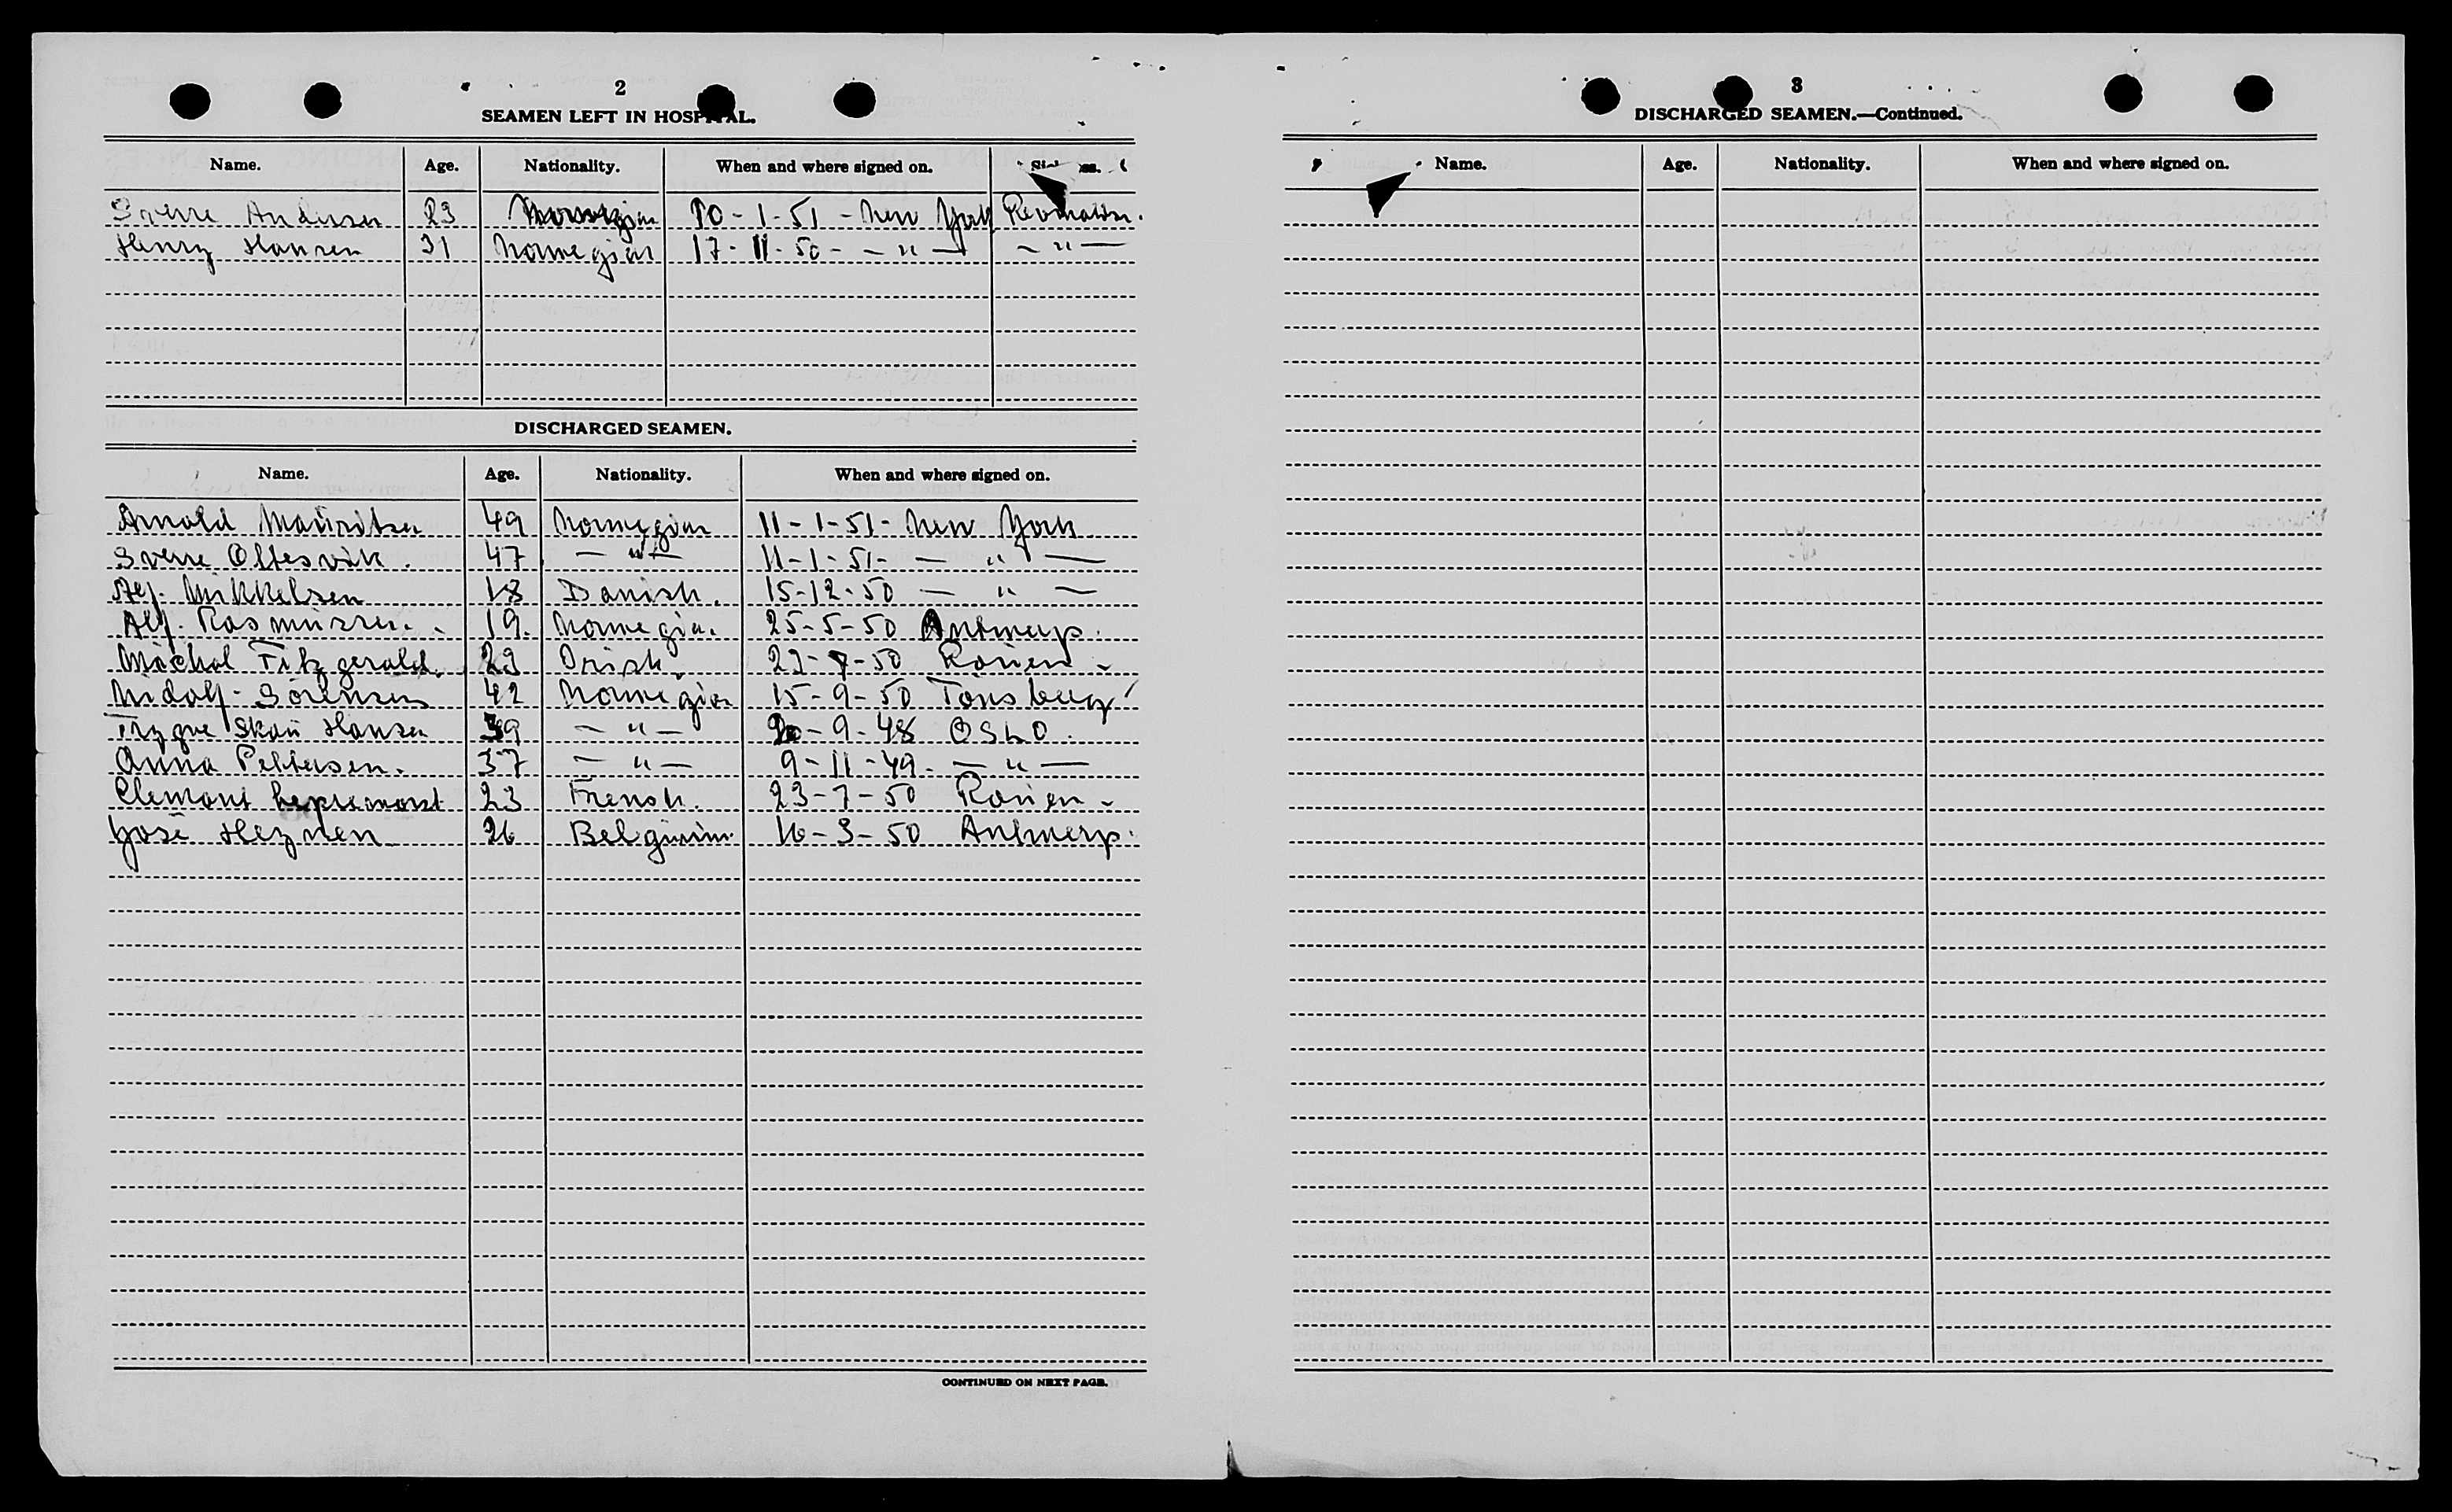 2
SEAMEN LEFT IN HOSPITAL.
Name. Age. Nationality. When and where signed on.
Sverre Andersen 23 Norwegian 10-1-51 - New York
Henry Hansen 31 Norwegian 17-11-50 - — " — — " —
DISCHARGED SEAMEN.
Name. Age. Nationality. When and where signed on.
Arnold Mauritsen 49 Norwegian 11-1-51- New York
Sverre Oltesvik. 47 — " — 11-1-51- — " —
Alf. Mikkelsen 18 Danish. 15-12-50 — " —
Alf. Rasmussen. 19. Norwegian. 25-5-50 Antwerp.
Michal Fitzgerald. 29 Irish. 29-7-50 Rouen -
Nidolf Sörensen 42 Norwegian 15-9-50 Tönsberg
Trygve Skau Hansen 39 — " — 20-9-48 OSLO.
Anna Pettersen. 37 — " — 9-11-49. — " —
Clemont 23 Frensh. 23-7-50 Rouen -
José Heznen 26 Belgium. 16-3-50 Antwerp.
CONTINUED ON NEXT PAGE.
3
DISCHARGED SEAMEN.—Continued.
Name. Age. Nationality. When and where signed on.